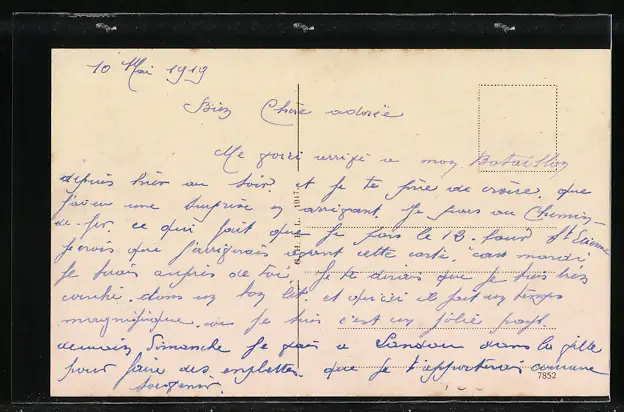 10 Mai 1919
Bien Chère adorée
Me voici arrivé a mon Bataillon
depuis hier au soir. et je te prie de croire. que
j'ai eu une surprise en arrivant. Je pars au Chemin-
de-fer. ce qui fait que je pars le 12. pour St Etienne
je crois que j'arriverais avant cette carte. car mardi
je serais auprès de toi. Je te dirais que je suis très
couché. dans un bon lit. et qu'ici il fait un temps
magnifique. ou je suis c'est un jolie pays.
demain Dimanche je vais a Landau dans la ville
pour faire des emplettes. que je t'apporterais comme
souvenir.
7852